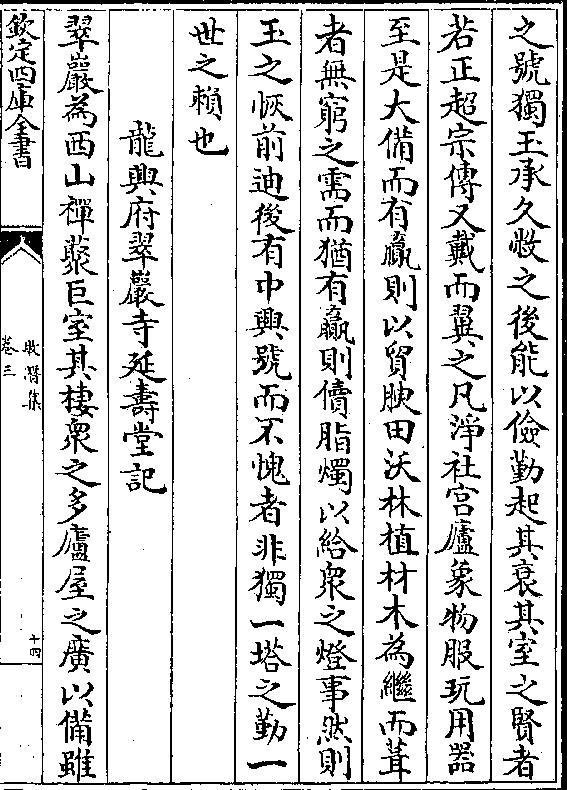 之號獨玉承久敝之後能以儉勤起其衰其室之賢者
若正超宗傳又戴而翼之凡淨社宮廬象物服玩用器
至是大備而有贏則以貿腴田沃林植材木為繼而葺
者無窮之需而猶有贏則儥脂燭以給衆之燈事然則
玉之恢前迪後有中興號而不愧者非獨一塔之勤一
世之頼也
龍興府翠巖寺延壽堂記
翠巖為西山禪藂巨室其棲衆之多廬屋之廣以備雖
欽定四庫全書
牧潛集
卷三
十四